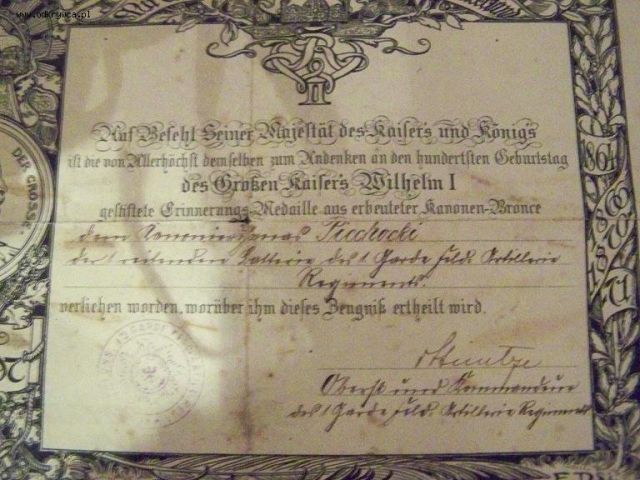 www.odkrywca.pl
Auf Befehl Seiner Majestät des Kaisers und Königs
ist die von Allerhöchst demselben zum Andenken an den hundertsten Geburtstag
des Großen Kaisers Wilhelm I
gestiftete Erinnerungs-Medaille aus erbeuteter Kanonen-Bronce
dem Kanonier
der 1 reitenden Batterie des 1 Garde Feld Artillerie
Regiments.
verliehen worden, worüber ihm dieses Zeugniß ertheilt wird.
Oberst und Kommandeur
des 1 Garde Feld Artillerie Regiments
DER GROSSE
1864
1866
1870
71